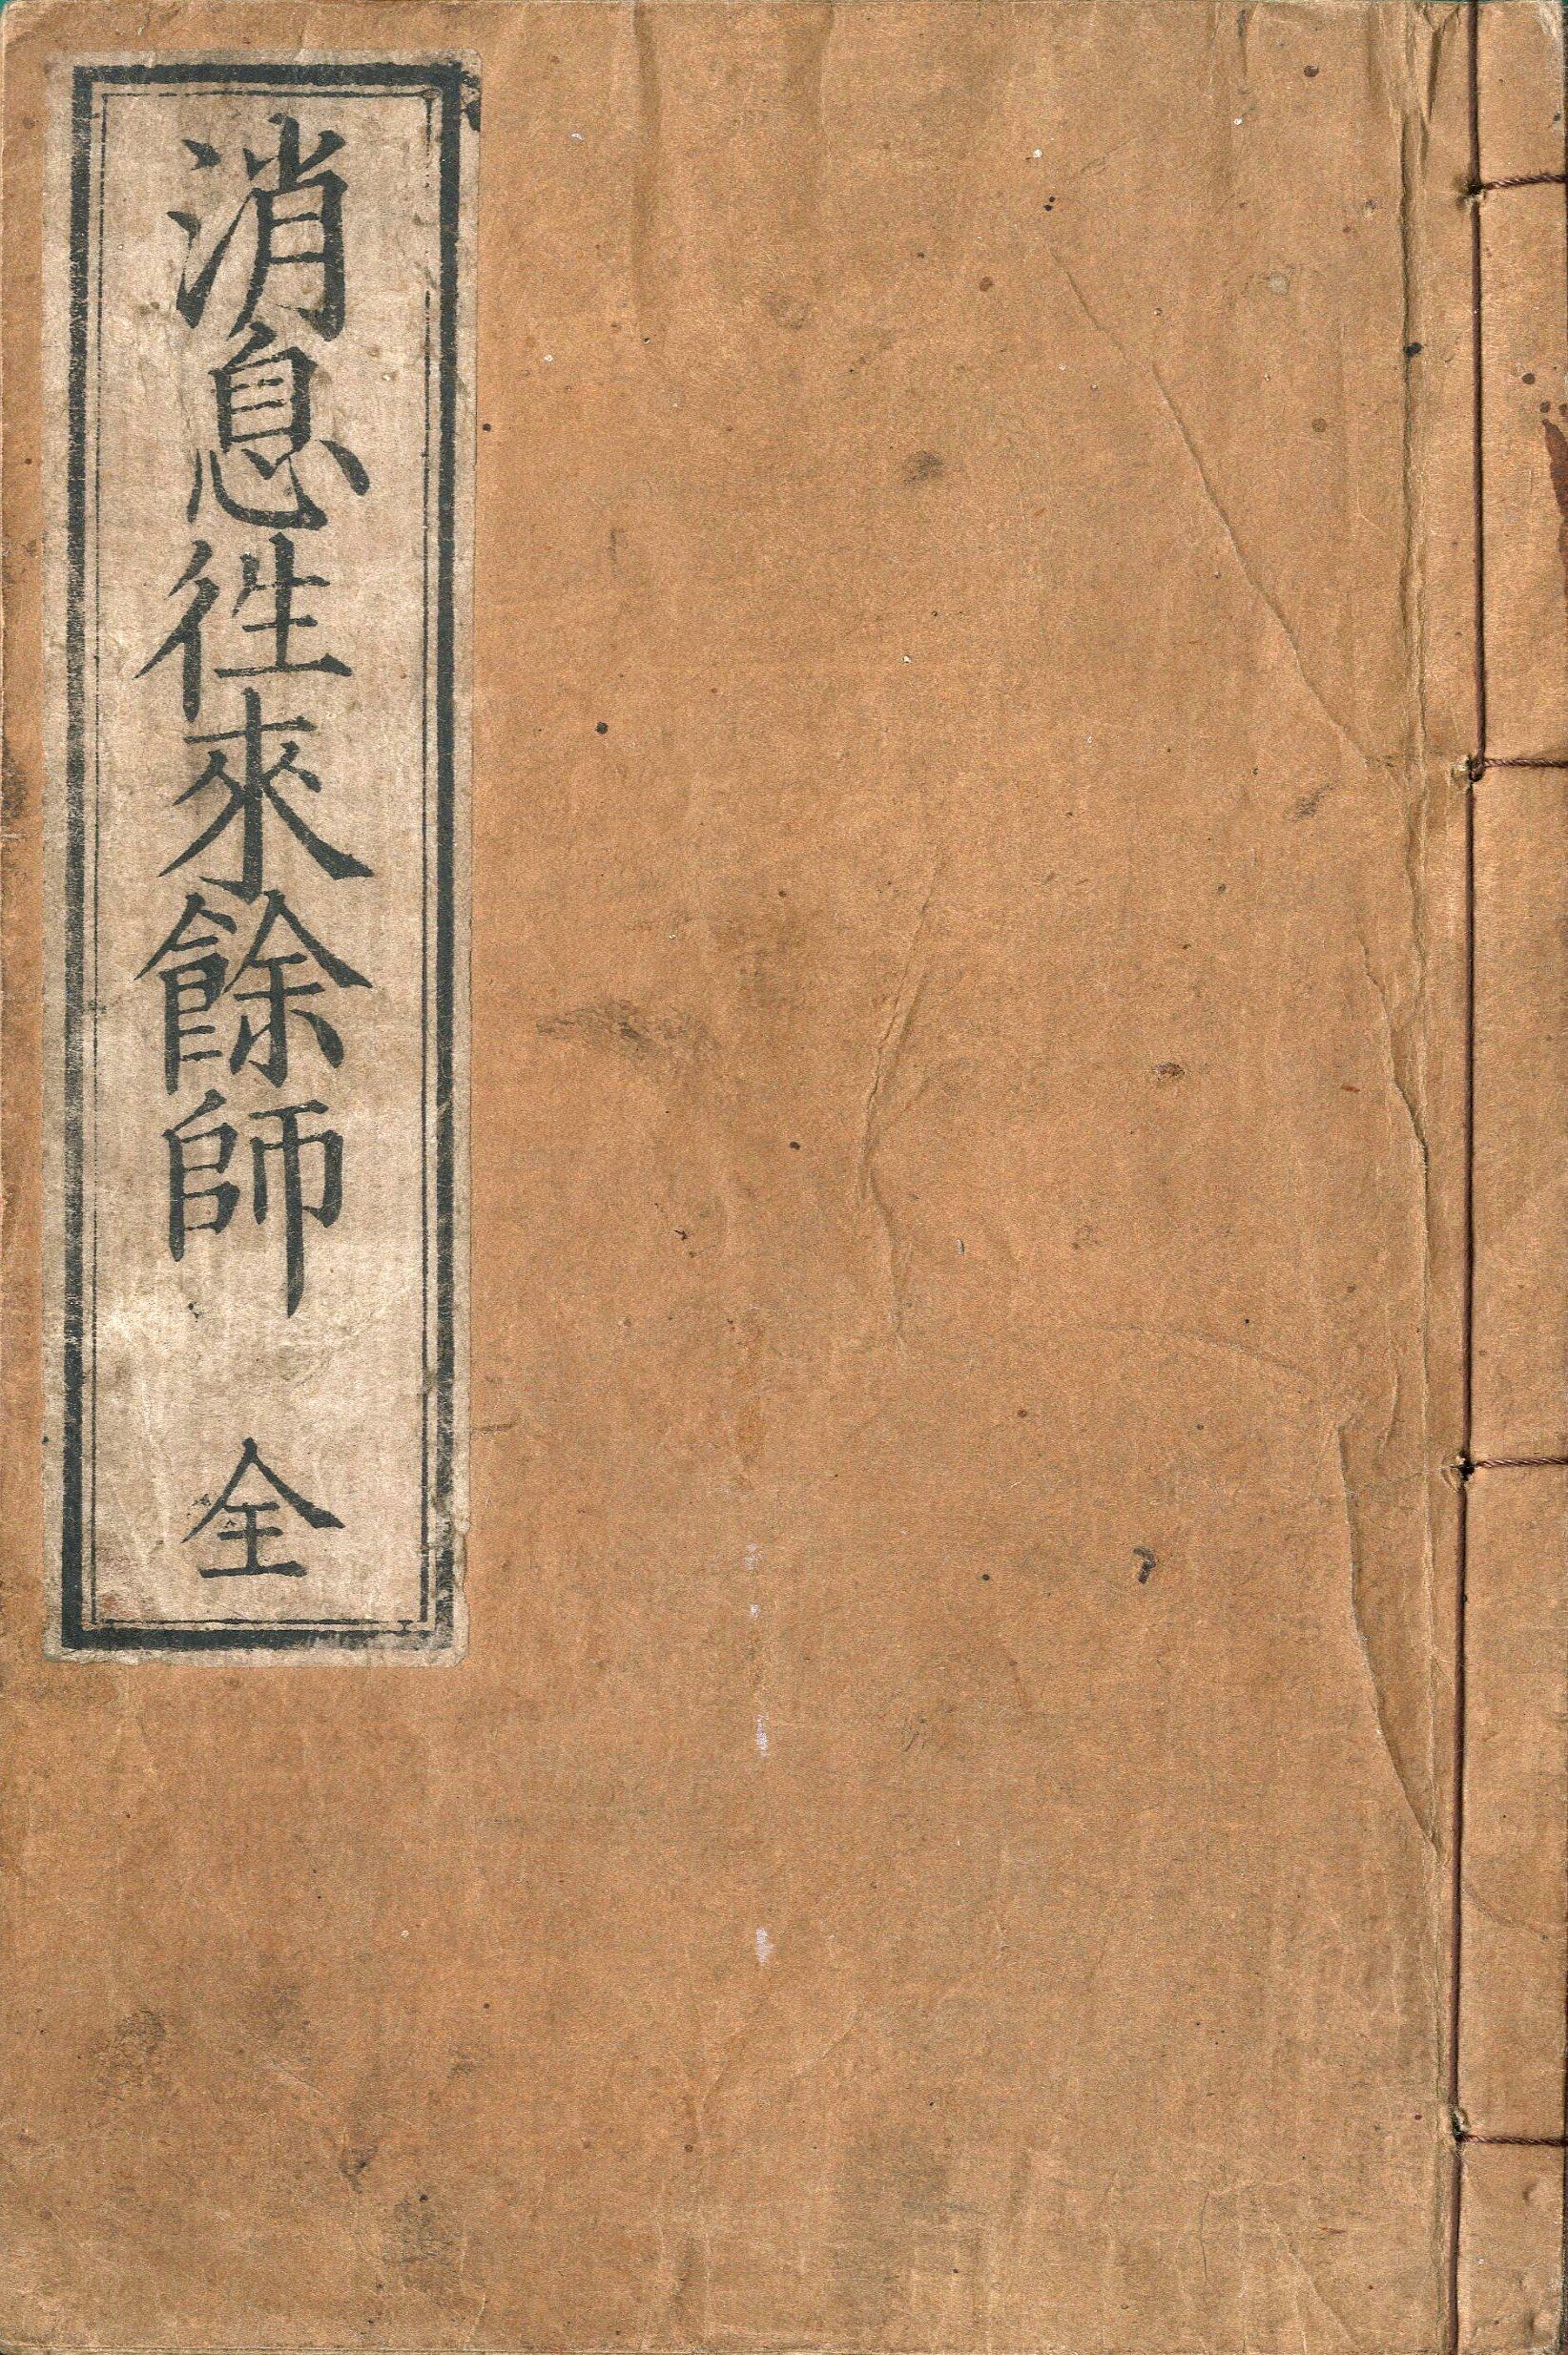 消息徃來餘師　全